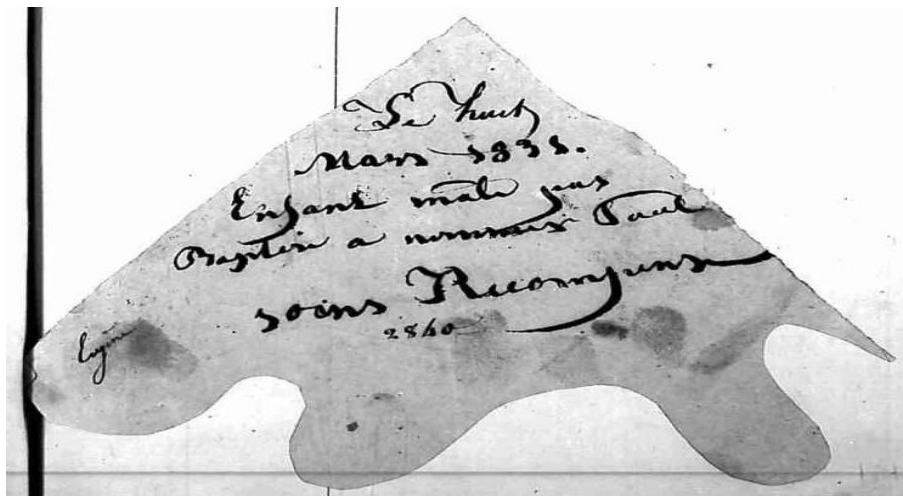 Le huit
Mars 1831.
Enfant mâle pas
Baptisé a nommer Paul
soins Recompense
2840
Eugene